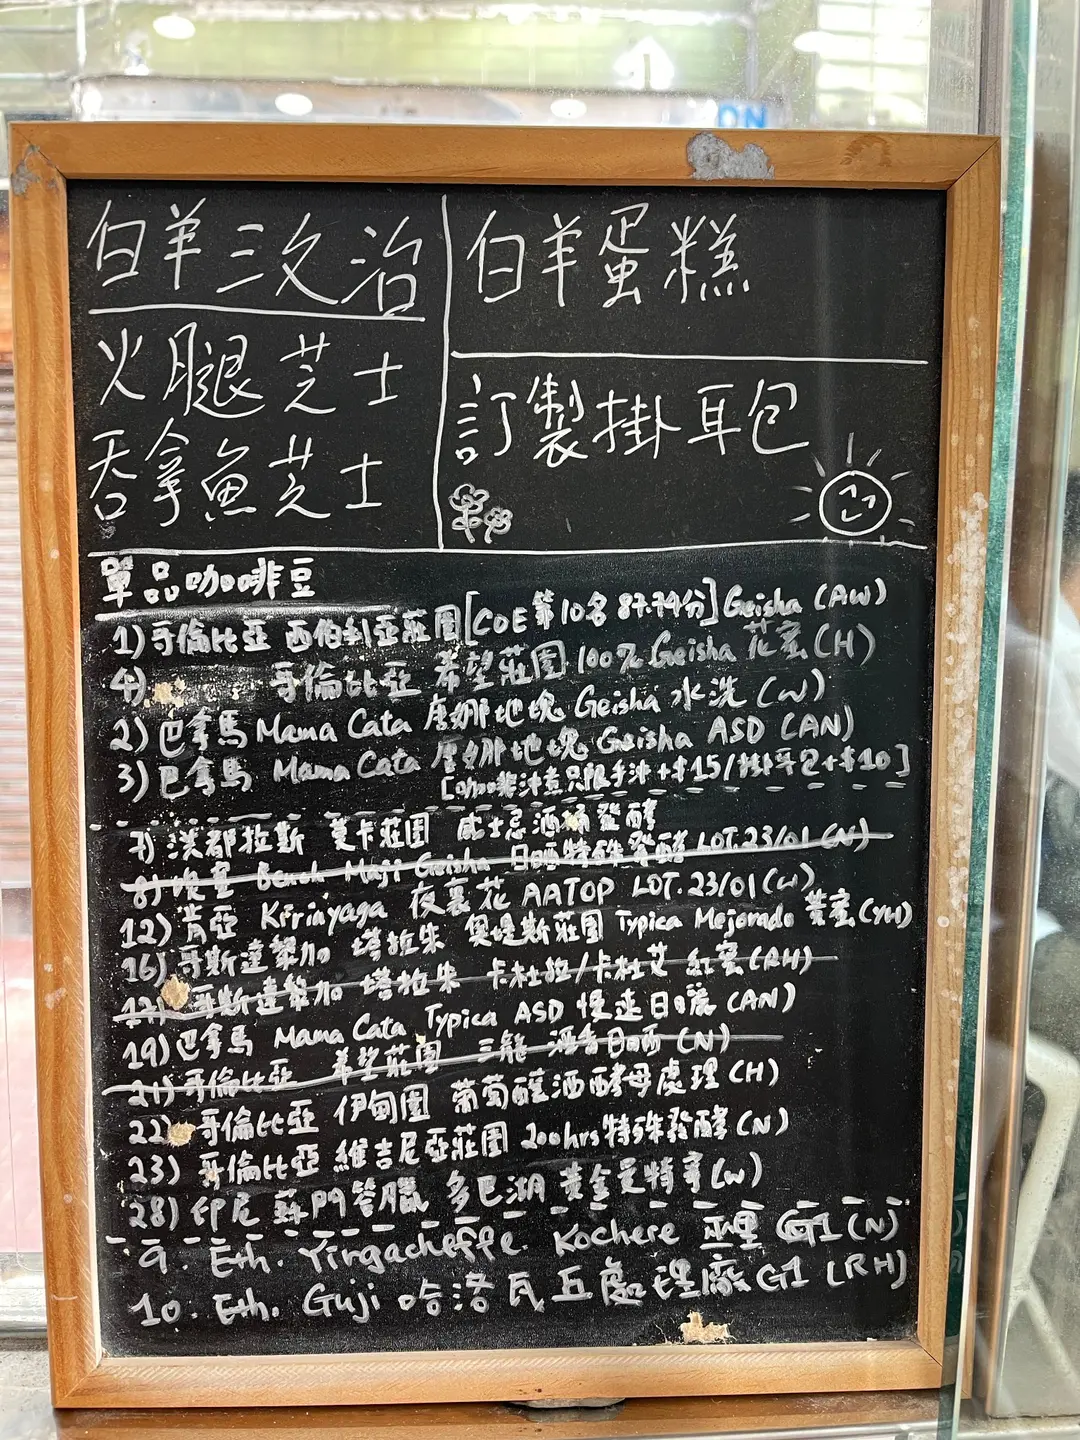 白羊三文治
火腿芝士
吞拿魚芝士
白羊蛋糕
訂製掛耳包
單品咖啡豆
1) 哥倫比亞 西伯利亞莊園 [COE第10名 87.74分] Geisha (AW)
4) 哥倫比亞 希望莊園 100% Geisha 花蜜 (H)
2) 巴拿馬 Mama Cata 唐娜地塊 Geisha 水洗 (W)
3) 巴拿馬 Mama Cata 唐娜地塊 Geisha ASD (AN)
[咖啡沖煮只限手沖 +$15/掛耳包+$10]
7) 洪都拉斯 莫卡莊園 威士忌酒桶發酵
8) 埃塞 Bench Maji Geisha 日晒特殊發酵 LOT.23/01 (N)
12) 肯亞 Kirinyaga 夜裏花 AATOP LOT.23/01 (W)
16) 哥斯達黎加 塔拉朱 奧堤斯莊園 Typica Mejorado 黃蜜 (YH)
哥斯達黎加 塔拉朱 卡杜拉/卡杜艾 紅蜜 (RH)
19) 巴拿馬 Mama Cata Typica ASD 慢速日曬 (AN)
21) 哥倫比亞 希望莊園 三龍 酒香日晒 (N)
22) 哥倫比亞 伊甸園 葡萄酒酵母處理 (H)
23) 哥倫比亞 維吉尼亞莊園 200hrs特殊發酵 (N)
28) 印尼 蘇門答臘 多巴湖 黃金曼特寧 (W)
9. Eth. Yirgacheffe. Kochere G1 (N)
10. Eth. Guji 哈洛瓦丘處理廠 G1 (RH)